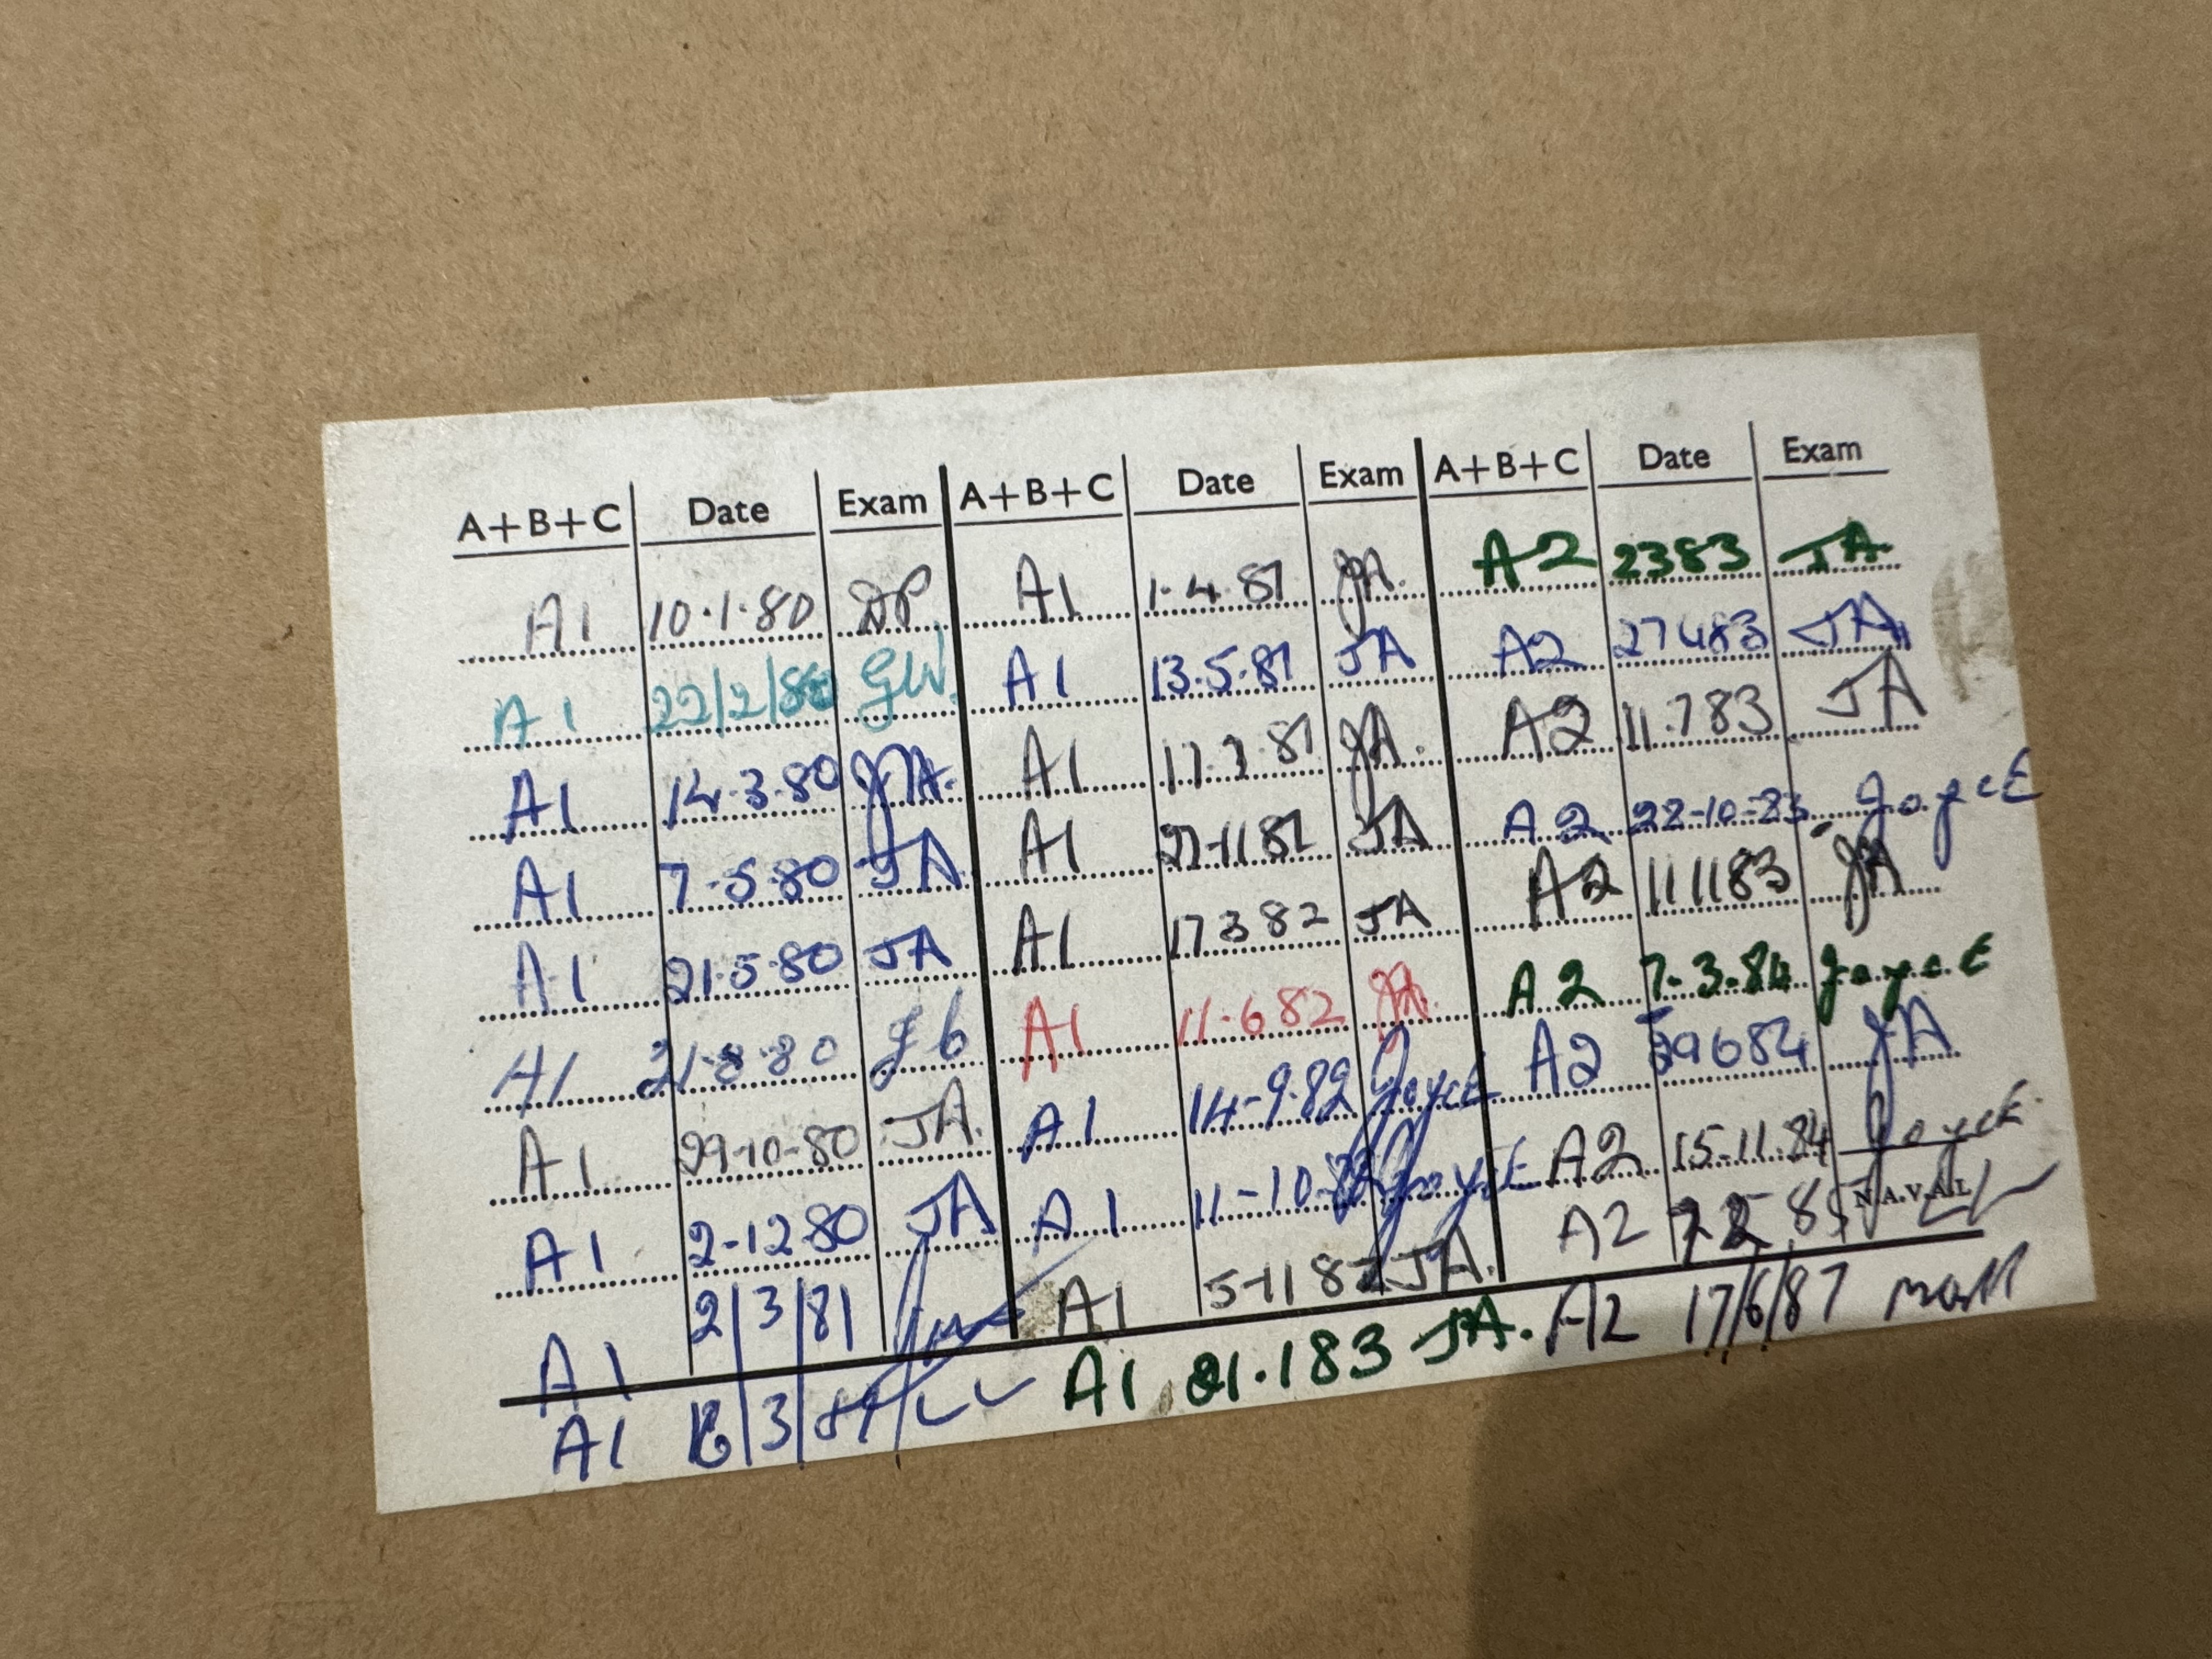 A+B+C Date Exam A+B+C Date Exam A+B+C Date Exam
A1 10·1·80 DP
A1 22/2/80 GW.
A1 14·3·80 JA.
A1 7·5·80 JA
A1 21·5·80 JA
A1 21·8·80 Jb
A1 29-10-80 JA.
A1 2-12-80 JA
A1 2/3/81
A1 /3/81
A1 1·4·81 JA.
A1 13·5·81 JA
A1 17·7·81 JA.
A1 27-11 81 JA
A1 17 3 82 JA
A1 11·6 82 JA.
A1 14-9-82 JoycE
A1 11-10-82 JoycE
A1 5-11 82 JA.
A1 21·1 83 JA.
A2 2 3 83 JA.
A2 27 4 83 JA
A2 11·7 83 JA
A2 22-10-83 JoycE
A2 11 11 83 JA
A2 7-3-84 JoycE
A2 6 84 JA
A2 15-11-84 JoycE
N.A.V.A.L
A2 85
A2 17/6/87